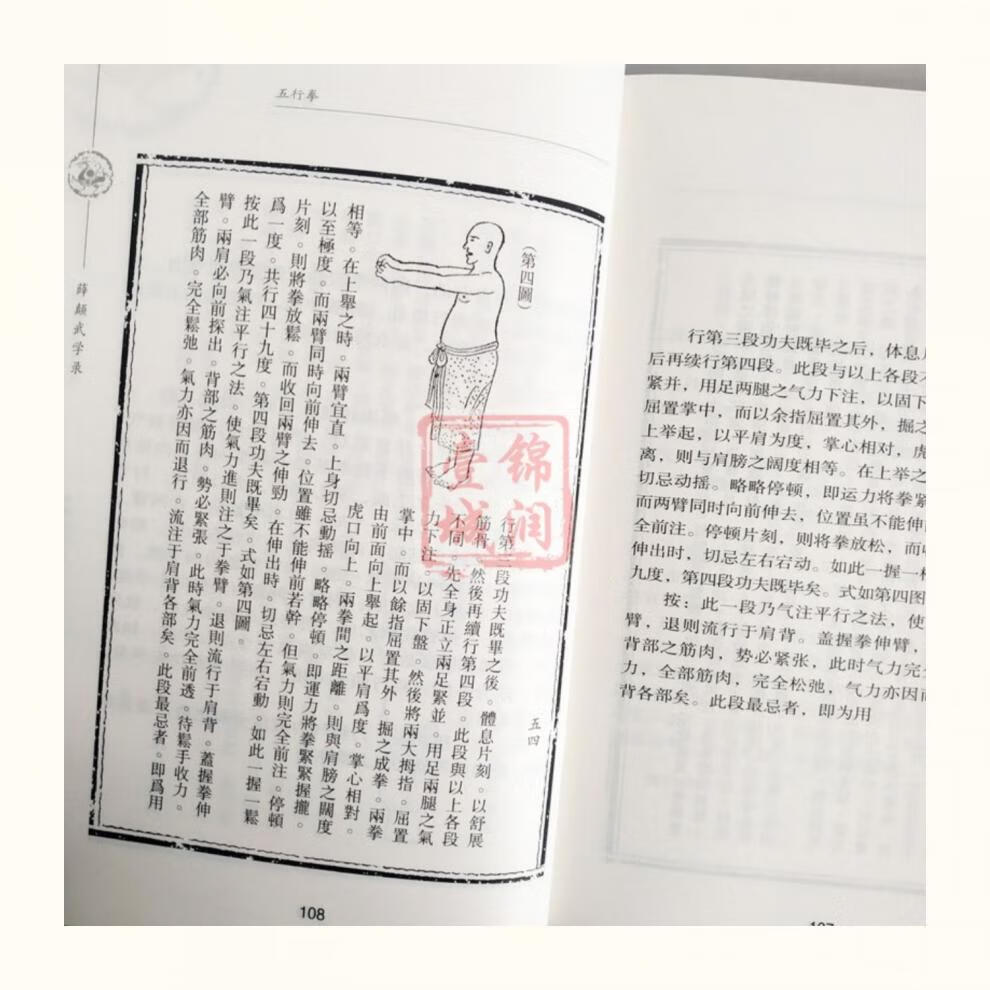 五行拳
薛顛武学录
(第四圖)
五四
行第三段功夫既畢之後。體息片刻。以舒展
筋骨。然後再續行第四段。此段與以上各段
不同。先全身正立兩足緊並。用足兩腿之氣
力下注。以固下盤。然後將兩大拇指。屈置
掌中。而以餘指屈置其外。掘之成拳。兩拳
由前面向上舉起。以平肩爲度。掌心相對。
虎口向上。兩拳間之距離。則與肩膀之闊度
相等。在上舉之時。兩臂宜直。上身切忌動搖。略略停頓。即運力將拳緊緊握攏。
以至極度。而兩臂同時向前伸去。位置雖不能伸前若幹。但氣力則完全前注。停頓
片刻。則將拳放鬆。而收回兩臂之伸勁。在伸出時。切忌左右宕動。如此一握一鬆
爲一度。共行四十九度。第四段功夫既畢矣。式如第四圖。
按此一段乃氣注平行之法。使氣力進則注之于拳臂。退則流行于肩背。蓋握拳伸
臂。兩肩必向前探出。背部之筋肉。勢必緊張。此時氣力完全前透。待鬆手收力。
全部筋肉。完全鬆弛。氣力亦因而退行。流注于肩背各部矣。此段最忌者。即爲用
108
行第三段功夫既毕之后，体息
后再续行第四段。此段与以上各段
紧并，用足两腿之气力下注，以固下
屈置掌中，而以余指屈置其外，掘之
上举起，以平肩为度，掌心相对，虎
离，则与肩膀之阔度相等。在上举之
切忌动摇。略略停顿，即运力将拳紧
而两臂同时向前伸去，位置虽不能伸
全前注。停顿片刻，则将拳放松，而
伸出时，切忌左右宕动。如此一握一
九度，第四段功夫既毕矣。式如第四图
按：此一段乃气注平行之法，使
臂，退则流行于肩背。盖握拳伸臂，
背部之筋肉，势必紧张，此时气力完
力，全部筋肉，完全松弛，气力亦因而
背各部矣。此段最忌者，即为用
锦润
壹城